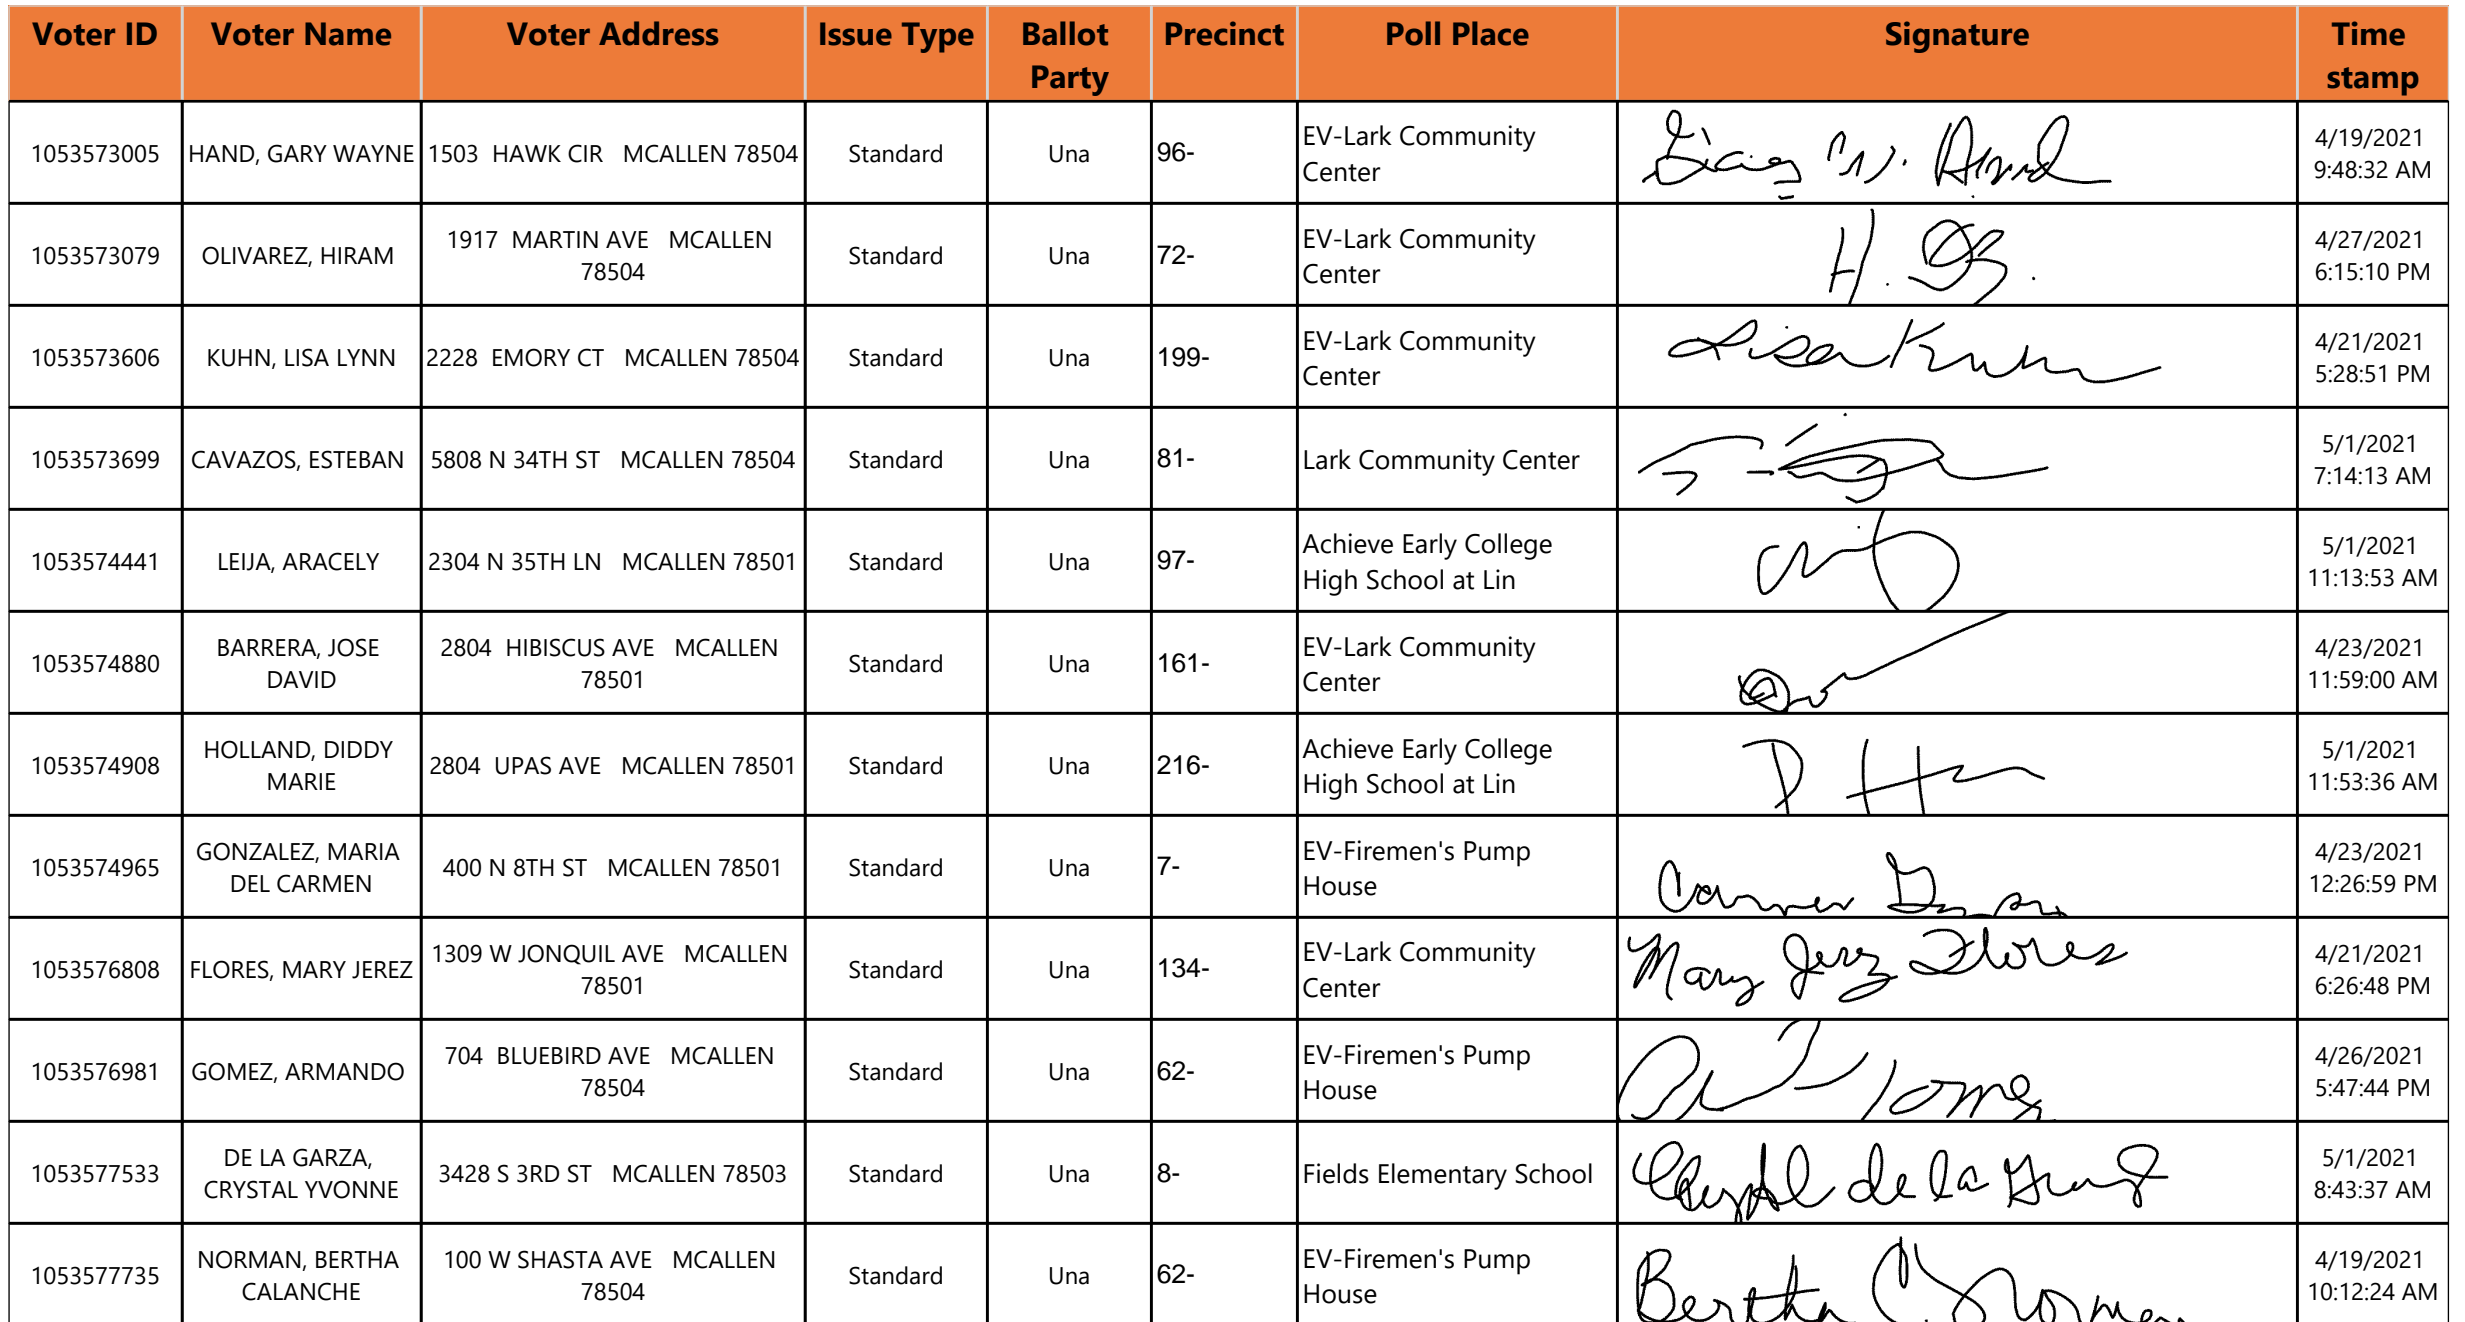 Voter ID Voter Name Voter Address Issue Type Ballot Party Precinct Poll Place Signature Time stamp
1053573005 HAND, GARY WAYNE 1503 HAWK CIR MCALLEN 78504 Standard Una 96- EV-Lark Community Center Gary W. Hand 4/19/2021 9:48:32 AM
1053573079 OLIVAREZ, HIRAM 1917 MARTIN AVE MCALLEN 78504 Standard Una 72- EV-Lark Community Center H. 4/27/2021 6:15:10 PM
1053573606 KUHN, LISA LYNN 2228 EMORY CT MCALLEN 78504 Standard Una 199- EV-Lark Community Center Lisa Kuhn 4/21/2021 5:28:51 PM
1053573699 CAVAZOS, ESTEBAN 5808 N 34TH ST MCALLEN 78504 Standard Una 81- Lark Community Center 5/1/2021 7:14:13 AM
1053574441 LEIJA, ARACELY 2304 N 35TH LN MCALLEN 78501 Standard Una 97- Achieve Early College High School at Lin 5/1/2021 11:13:53 AM
1053574880 BARRERA, JOSE DAVID 2804 HIBISCUS AVE MCALLEN 78501 Standard Una 161- EV-Lark Community Center 4/23/2021 11:59:00 AM
1053574908 HOLLAND, DIDDY MARIE 2804 UPAS AVE MCALLEN 78501 Standard Una 216- Achieve Early College High School at Lin 5/1/2021 11:53:36 AM
1053574965 GONZALEZ, MARIA DEL CARMEN 400 N 8TH ST MCALLEN 78501 Standard Una 7- EV-Firemen's Pump House Carmen 4/23/2021 12:26:59 PM
1053576808 FLORES, MARY JEREZ 1309 W JONQUIL AVE MCALLEN 78501 Standard Una 134- EV-Lark Community Center Mary Jerez Flores 4/21/2021 6:26:48 PM
1053576981 GOMEZ, ARMANDO 704 BLUEBIRD AVE MCALLEN 78504 Standard Una 62- EV-Firemen's Pump House 4/26/2021 5:47:44 PM
1053577533 DE LA GARZA, CRYSTAL YVONNE 3428 S 3RD ST MCALLEN 78503 Standard Una 8- Fields Elementary School Crystal de la Garza 5/1/2021 8:43:37 AM
1053577735 NORMAN, BERTHA CALANCHE 100 W SHASTA AVE MCALLEN 78504 Standard Una 62- EV-Firemen's Pump House Bertha C. Norman 4/19/2021 10:12:24 AM